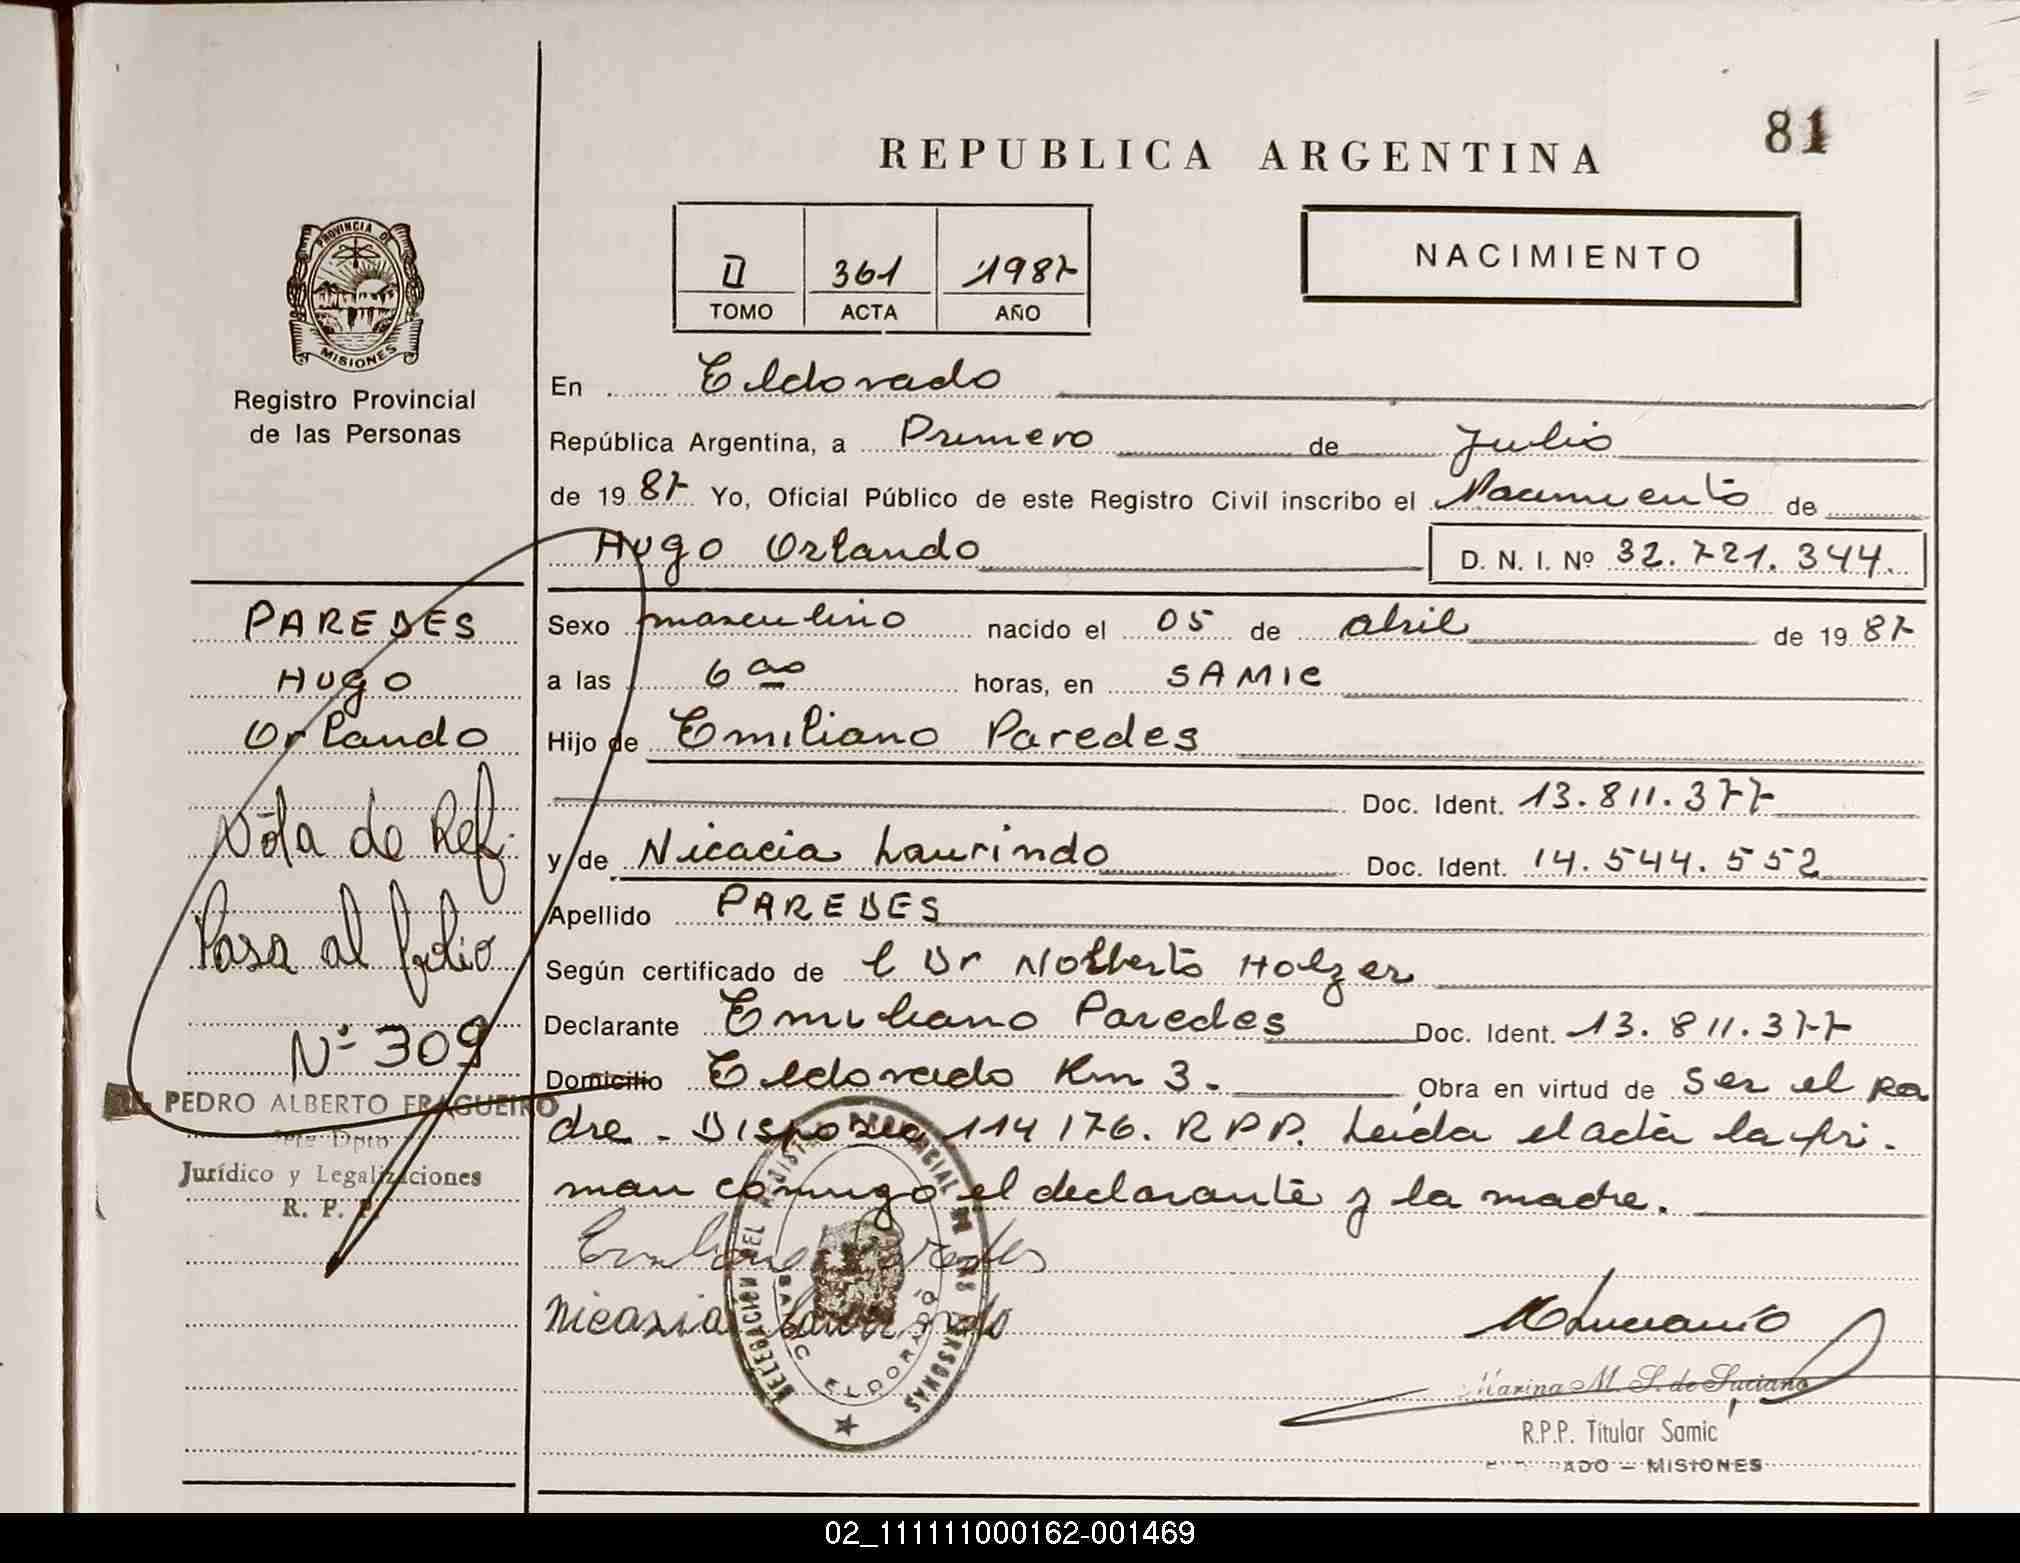 81
REPUBLICA ARGENTINA
NACIMIENTO
II 361 1987
TOMO ACTA AÑO
PROVINCIA DE
MISIONES
Registro Provincial
de las Personas
En Eldorado
República Argentina, a Primero de Julio
de 1987 Yo, Oficial Público de este Registro Civil inscribo el Nacimiento de
Hugo Orlando D. N. I. Nº 32.721.344.
Sexo masculino nacido el 05 de abril de 1987
a las 6 oo horas, en SAMIC
Hijo de Emiliano Paredes
Doc. Ident. 13.811.377
y de Nicacia Laurindo Doc. Ident. 14.544.552
Apellido PAREDES
Según certificado de l Dr Norberto Holzer
Declarante Emiliano Paredes Doc. Ident. 13.811.377
Domicilio Eldorado Km 3. Obra en virtud de ser el pa
dre - Disposic 114/76. R.P.P. Leida el acta la fir-
man conmigo el declarante y la madre.
Emiliano Paredes
Nicasia Laurindo
DELEGACIÓN DEL REGISTRO PROVINCIAL DE LAS PERSONAS
SAMIC ELDORADO
Marina M. S. de Luciano
R.P.P. Titular Samic
ELDORADO - MISIONES
PAREDES
Hugo
Orlando
Nota de Ref.
Pasa al folio
Nº 309
PEDRO ALBERTO FRAGUEIRO
Dpto
Jurídico y Legalizaciones
R. P. P.
02_111111000162-001469